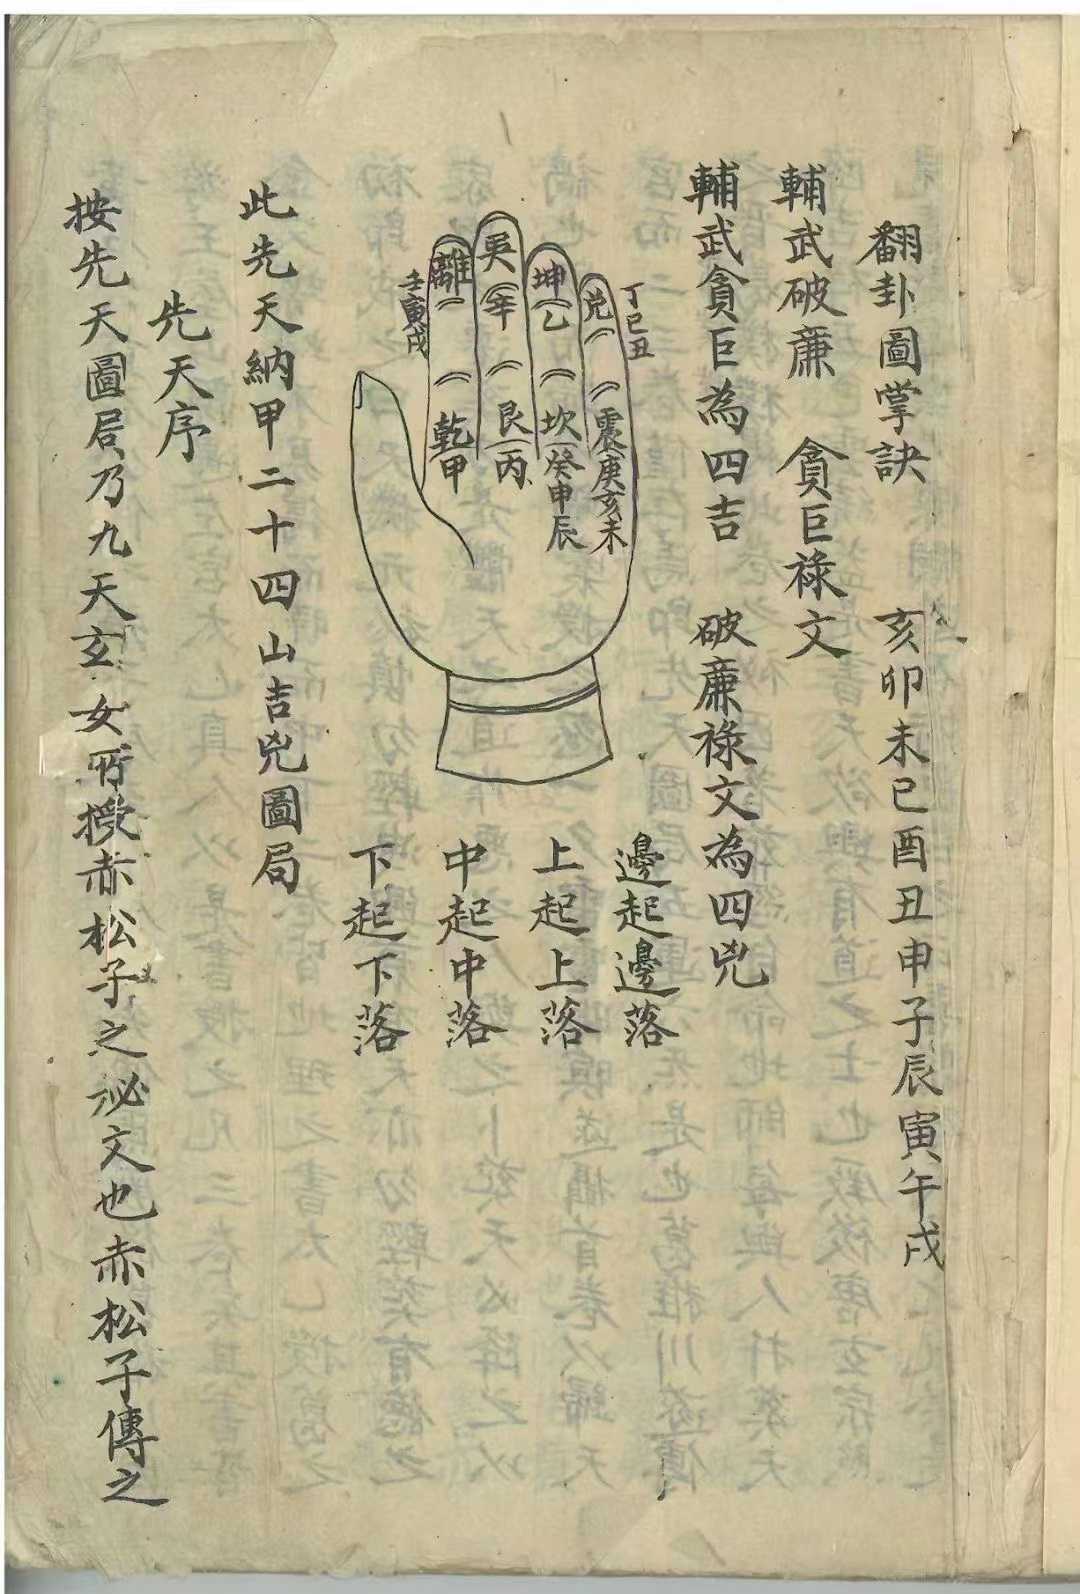 翻卦圖掌訣　亥卯未巳酉丑申子辰寅午戌
輔武破廉　貪巨祿文
輔武貪巨為四吉　破廉祿文為四兇
丁巳丑
兌
震庚亥未
坤
乙
坎
癸申辰
巽
辛
艮
丙
離
乾甲
壬寅戌
邊起邊落
上起上落
中起中落
下起下落
此先天納甲二十四山吉兇圖局
先天序
按先天圖局乃九天玄女所授赤松子之祕文也赤松子傳之